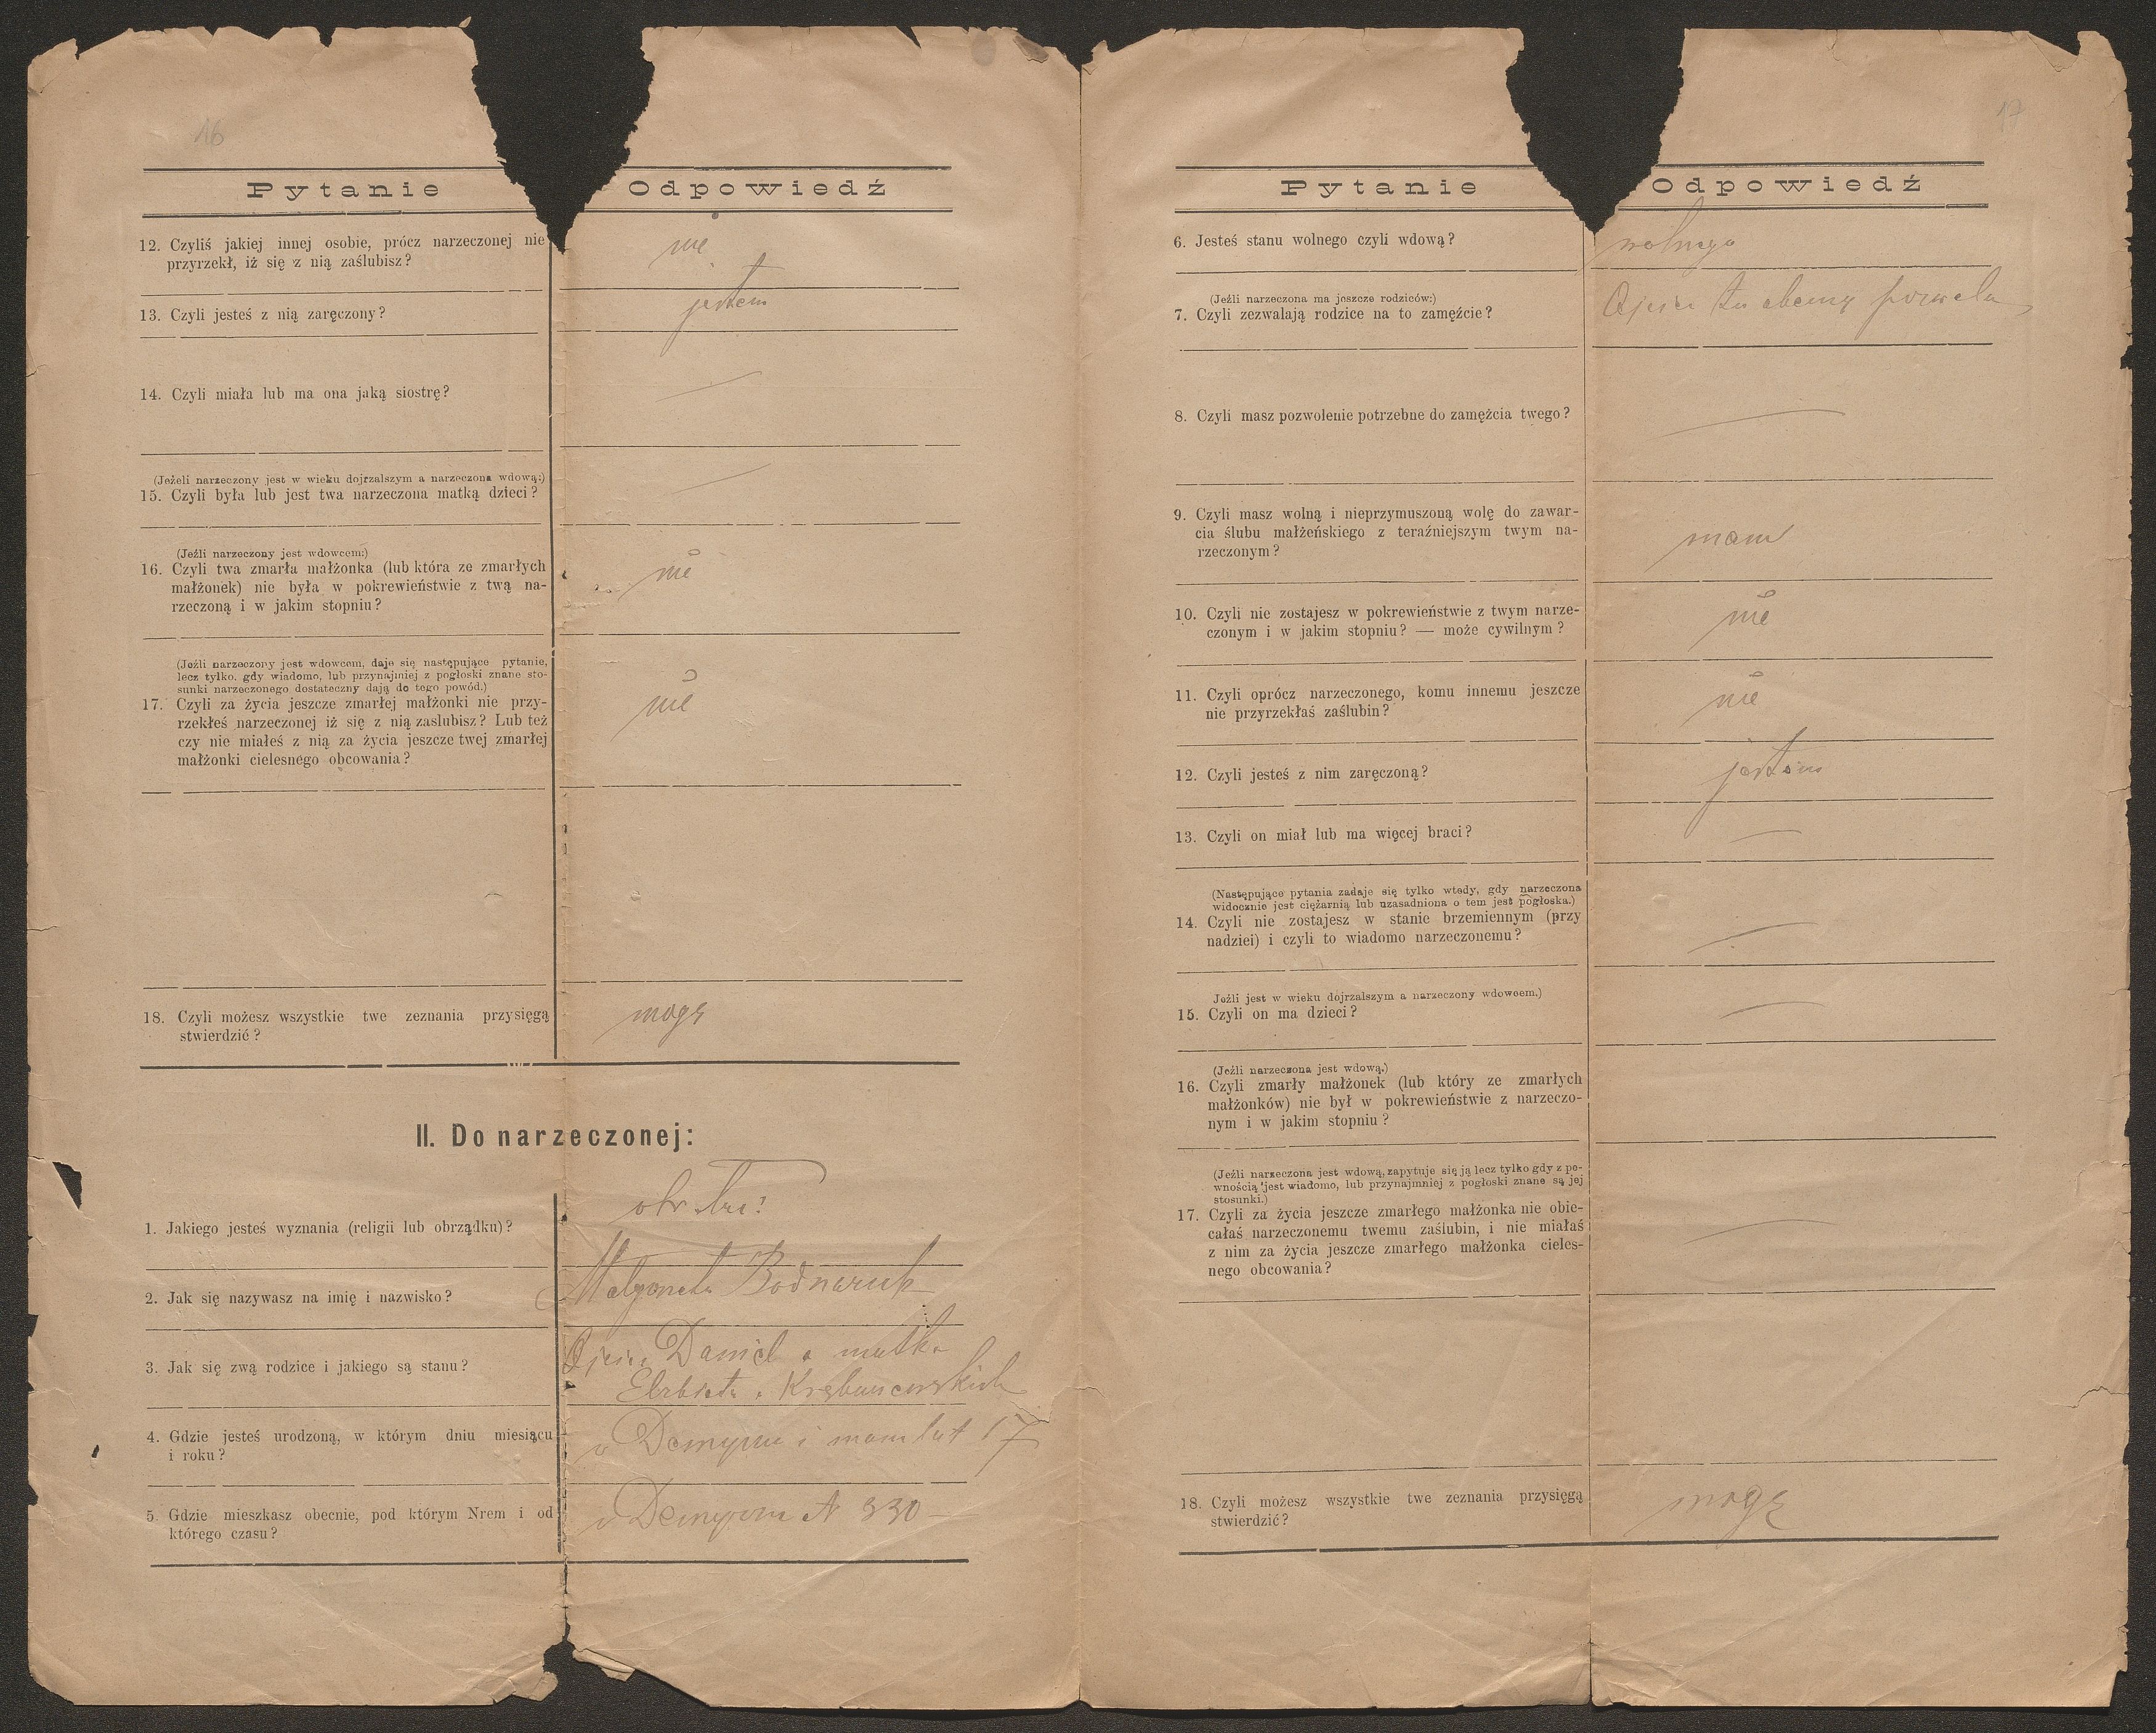 16
Pytanie
Odpowiedź
12. Czyliś jakiej innej osobie, prócz narzeczonej nie
przyrzekł, iż się z nią zaślubisz?
nie
13. Czyli jesteś z nią zaręczony?
jestem
14. Czyli miała lub ma ona jaką siostrę?
(Jeżeli narzeczony jest w wieku dojrzalszym a narzeczona wdową:)
15. Czyli była lub jest twa narzeczona matką dzieci?
(Jeźli narzeczony jest wdowcem:)
16. Czyli twa zmarła małżonka (lub która ze zmarłych
małżonek) nie była w pokrewieństwie z twą na-
rzeczoną i w jakim stopniu?
nie
(Jeźli narzeczony jest wdowcem, daje się następujące pytanie,
lecz tylko. gdy wiadomo, lub przynajmiej z pogłoski znane sto-
sunki narzeczonego dostateczny dają do tego powód.)
17. Czyli za życia jeszcze zmarłej małżonki nie przy-
rzekłeś narzeczonej iż się z nią zaslubisz? Lub też
czy nie miałeś z nią za życia jeszcze twej zmarłej
małżonki cielesnego obcowania?
nie
18. Czyli możesz wszystkie twe zeznania przysięgą
stwierdzić?
mogę
II. Do narzeczonej:
1. Jakiego jesteś wyznania (religii lub obrządku)?
obr. łac:
2. Jak się nazywasz na imię i nazwisko?
Bodnaruk
3. Jak się zwą rodzice i jakiego są stanu?
Ojciec Daniel a matka
Elżbieta
4. Gdzie jesteś urodzoną, w którym dniu miesiącu
i roku?
i mam lat 17
5. Gdzie mieszkasz obecnie, pod którym Nrem i od
którego czasu?
N 330 —
17
Pytanie
Odpowiedź
6. Jesteś stanu wolnego czyli wdową?
wolnego
(Jeźli narzeczona ma jeszcze rodziców:)
7. Czyli zezwalają rodzice na to zamęźcie?
Ojciec tu obecny pozwala
8. Czyli masz pozwolenie potrzebne do zamężcia twego?
9. Czyli masz wolną i nieprzymuszoną wolę do zawar-
cia ślubu małżeńskiego z teraźniejszym twym na-
rzeczonym?
mam
10. Czyli nie zostajesz w pokrewieństwie z twym narze-
czonym i w jakim stopniu? — może cywilnym?
nie
11. Czyli oprócz narzeczonego, komu innemu jeszcze
nie przyrzekłaś zaślubin?
nie
12. Czyli jesteś z nim zaręczoną?
jestem
13. Czyli on miał lub ma więcej braci?
(Następujące pytania zadaje się tylko wtedy, gdy narzeczona
widocznie jest ciężarnią lub uzasadniona o tem jest pogłoska.)
14. Czyli nie zostajesz w stanie brzemiennym (przy
nadziei) i czyli to wiadomo narzeczonemu?
Jeźli jest w wieku dojrzalszym a narzeczony wdowcem.)
15. Czyli on ma dzieci?
(Jeźli narzeczona jest wdową.)
16. Czyli zmarły małżonek (lub który ze zmarłych
małżonków) nie był w pokrewieństwie z narzeczo-
nym i w jakim stopniu?
(Jeźli narzeczona jest wdową, zapytuje się ją lecz tylko gdy z pe-
wnością jest wiadomo, lub przynajmniej z pogłoski znane są jej
stosunki.)
17. Czyli za życia jeszcze zmarłego małżonka nie obie-
całaś narzeczonemu twemu zaślubin, i nie miałaś
z nim za życia jeszcze zmarłego małżonka cieles-
nego obcowania?
18. Czyli możesz wszystkie twe zeznania przysięgą
stwierdzić?
mogę